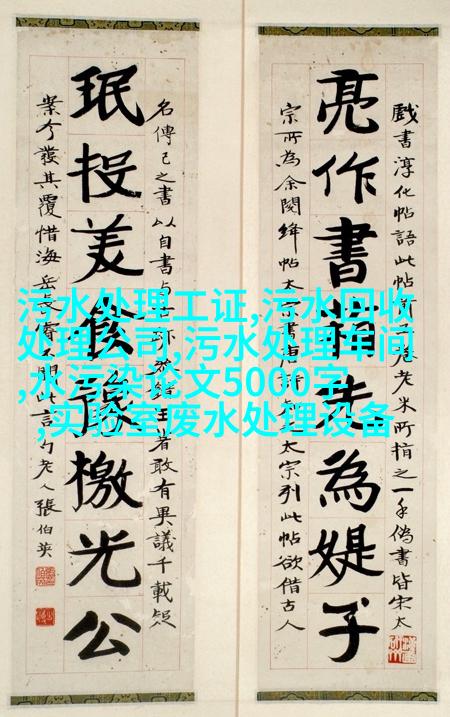 污水处理工证,污水回收
处理公司,污水处理车间
,水污染论文5000字
,实验室废水处理设备
戲書淳化帖語此帖卷老米所指之一手偽書皆宋太
亮作書箱為媞子
宗所為余閱絳帖太宗書唐太宗列此帖欲借古人
名傳己之書以自書与錯注者敢有異議千載疑
珉投美豫檄光公
案今發其覆惜海岳不聞此言勺老人張伯英